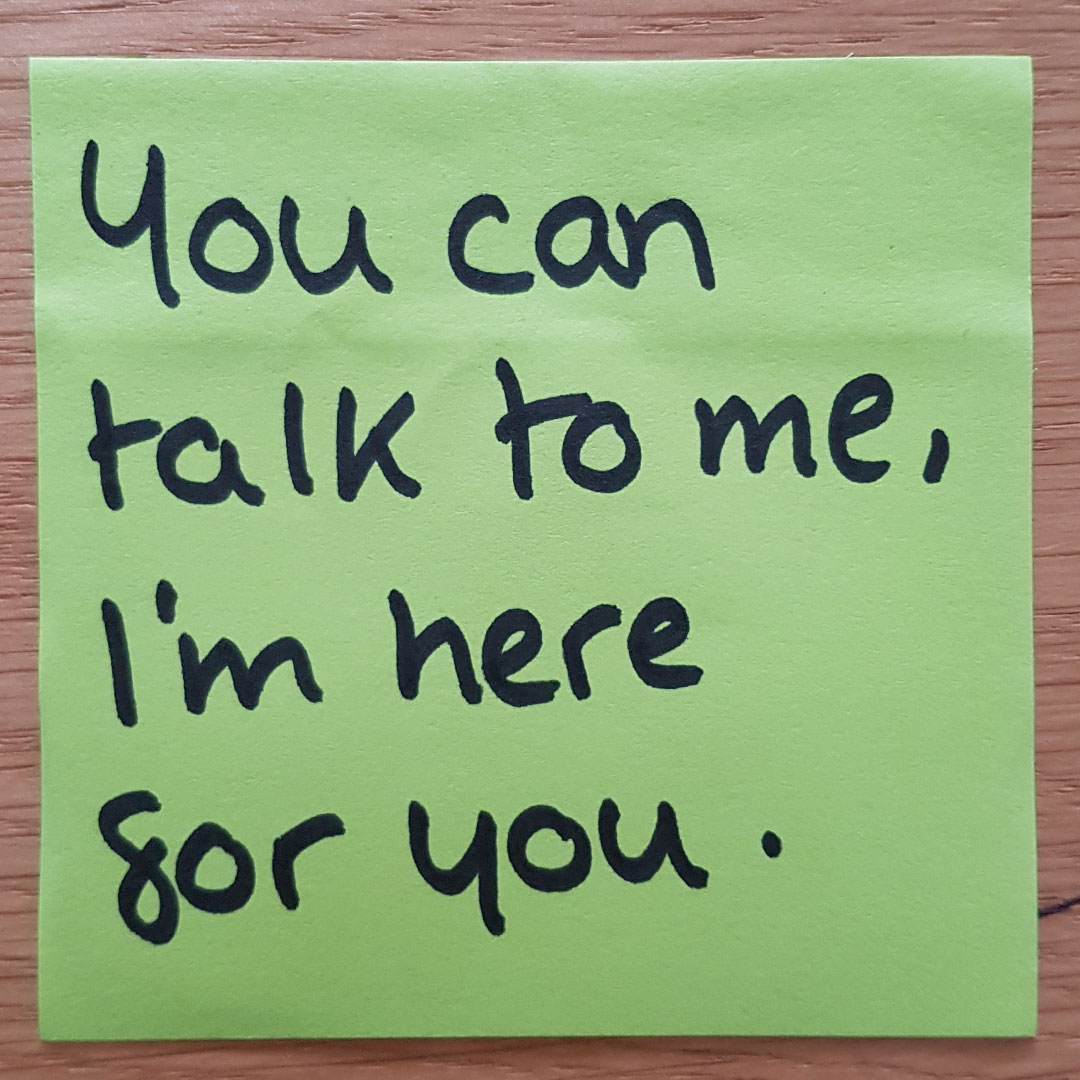 You can
talk to me,
I'm here
for you.